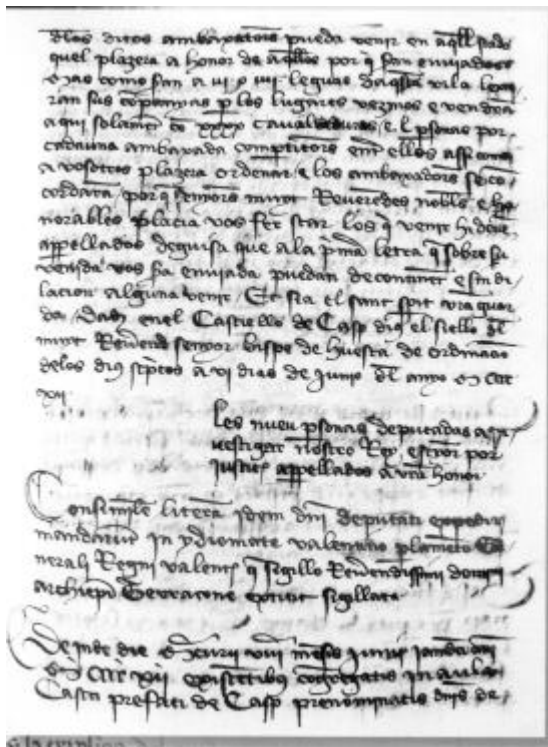 delos ditos ambaxatores pueda venir en aqll stado
quel plazera a honor de aqllos por q̃ san enviados
Mas como san a III o IIII leguas daqsta vila lexa
ran sus companias p los lugares vezinos e vendra
aqui solament co XXXX cavalcaduras e L psonas por
cadauna ambaxada comptitors entre ellos assi como
a vosotros plazera ordenar e los ambaxadors se co
cordara por q̃ senyors muyt Reveredes nobles e ho
norables placia vos fer star los q̃ venir hi deve
appellados deguisa que ala prima letra q̃ sobre su
venida vos sia enviada puedan decontinet e sin di
lacion alguna venir Et sia el sant spirit vra guar
da Dada enel Castiello de Casp dius el siello del
muyt Reverend senyor bispe de huesca de ordinacio
delos dius scriptos a VI dias de junio del anyo M CCCC
XII
Les nueu psonas deputadas a
vestigar nostro Rey e senyor por
justicia appellados a vra honor
Consimile litera idem dni deputati expediri
mandarunt in ydiomate valenciano plameto Ge
nerali Regni valentie q̃ sigillo Reverendissimi domini
archiepi Terracone extitit sigillata
Deinde die Mercurii VIII mensis junii jamdicti anni
M CCCC XII existetibus cogregatis in aula
Castri prefati de Casp prenominatis dnis de